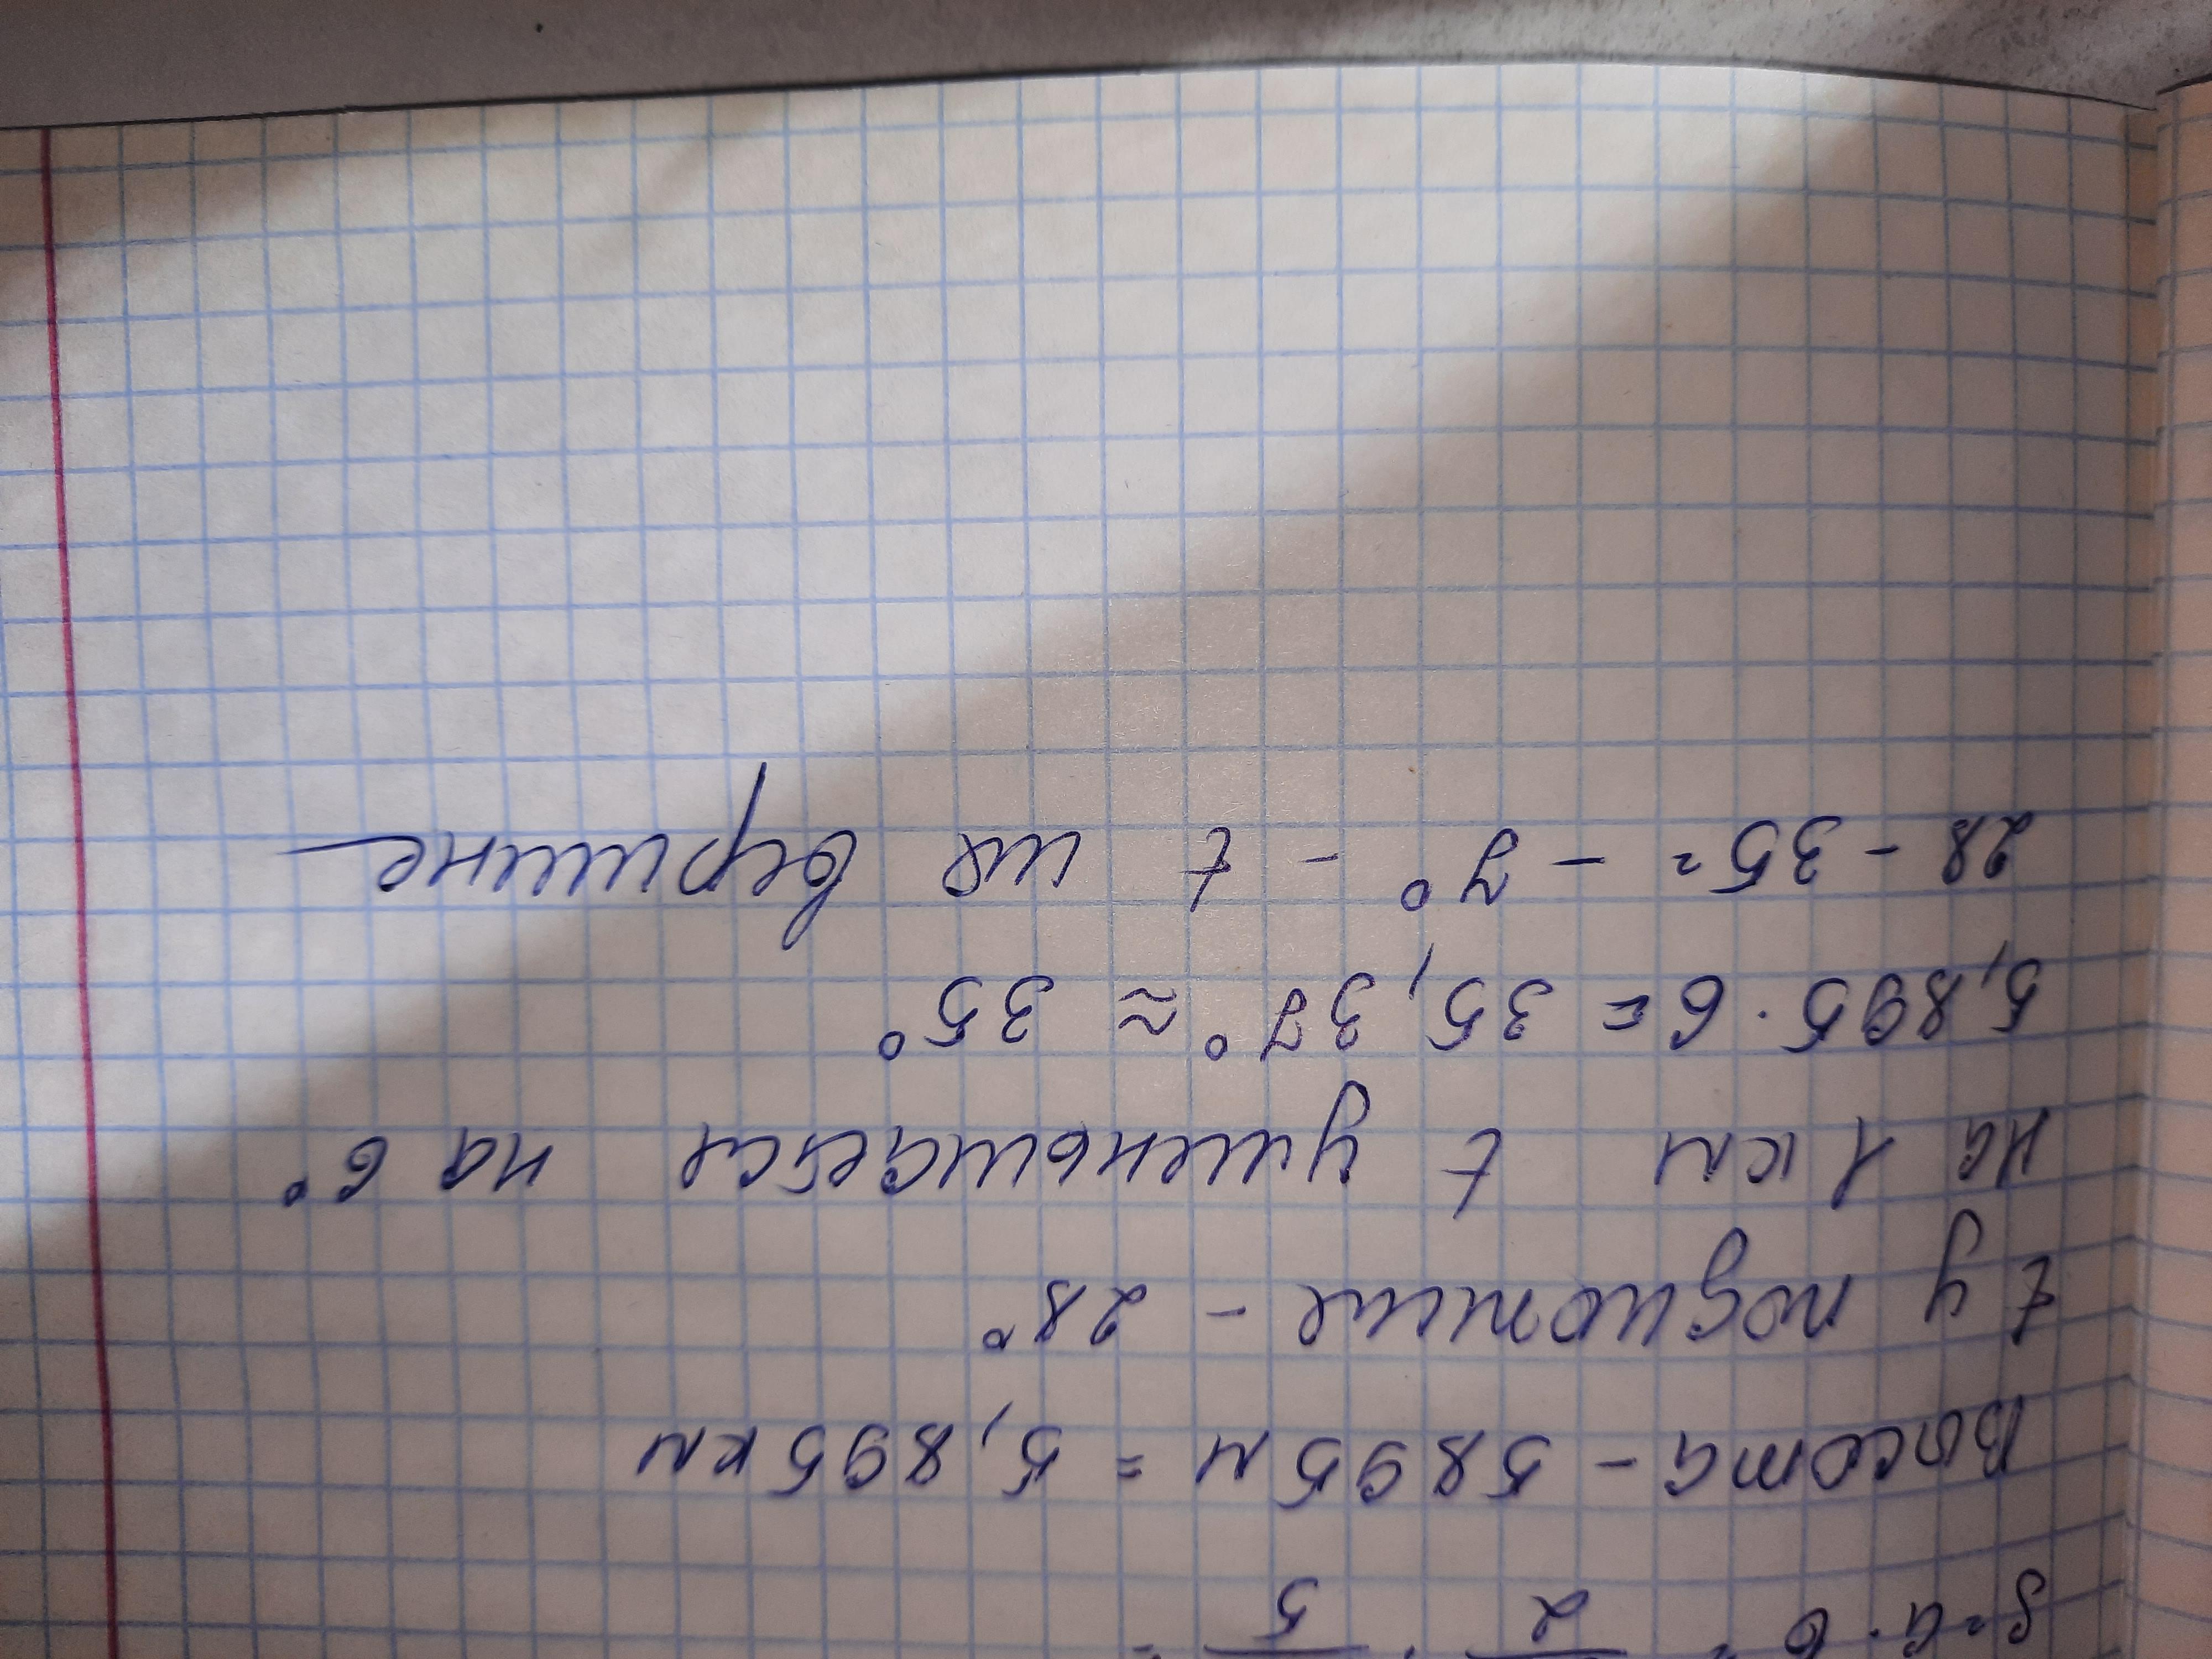 S=a·b=
2
5
Высота - 5895м = 5,895км
t у подножия - 28°
на 1 км t уменьшается на 6°
5,895·6=35,37°≈35°
28-35=-7° - t на вершине